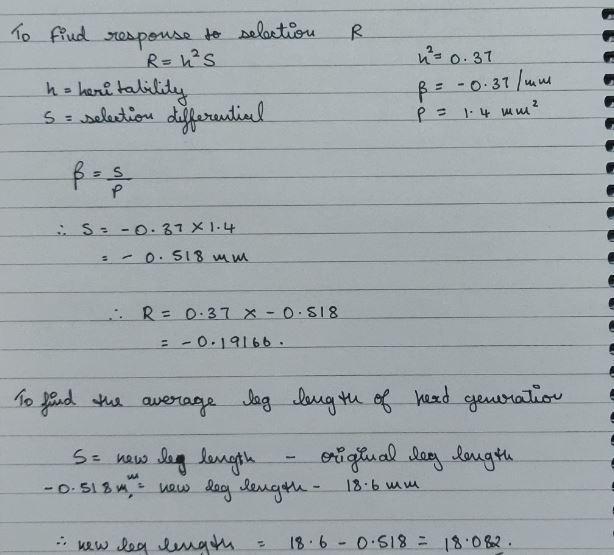 To find response to selection R
R = h²S
h² = 0.37
h = heritability
β = -0.37/mm
S = selection differential
P = 1.4 mm²
β = S/P
∴ S = -0.37 × 1.4
= - 0.518 mm
∴ R = 0.37 × - 0.518
= -0.19166.
To find the average leg length of next generation
S = new leg length - original leg length
-0.518 mm = new leg length - 18.6 mm
∴ new leg length = 18.6 - 0.518 = 18.082.